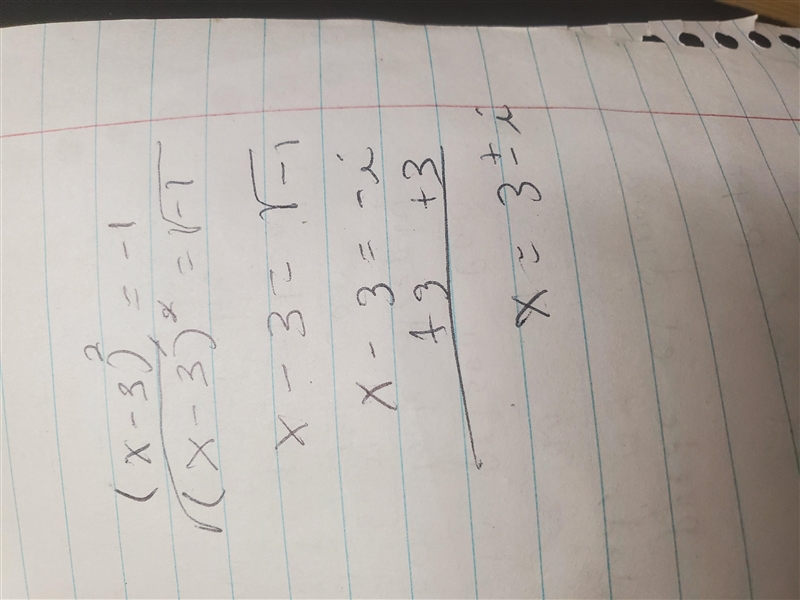 (x-3)² = -1
√(x-3)² = √-1
x - 3 = √-1
x - 3 = -i
+3 +3
x = 3 ± i